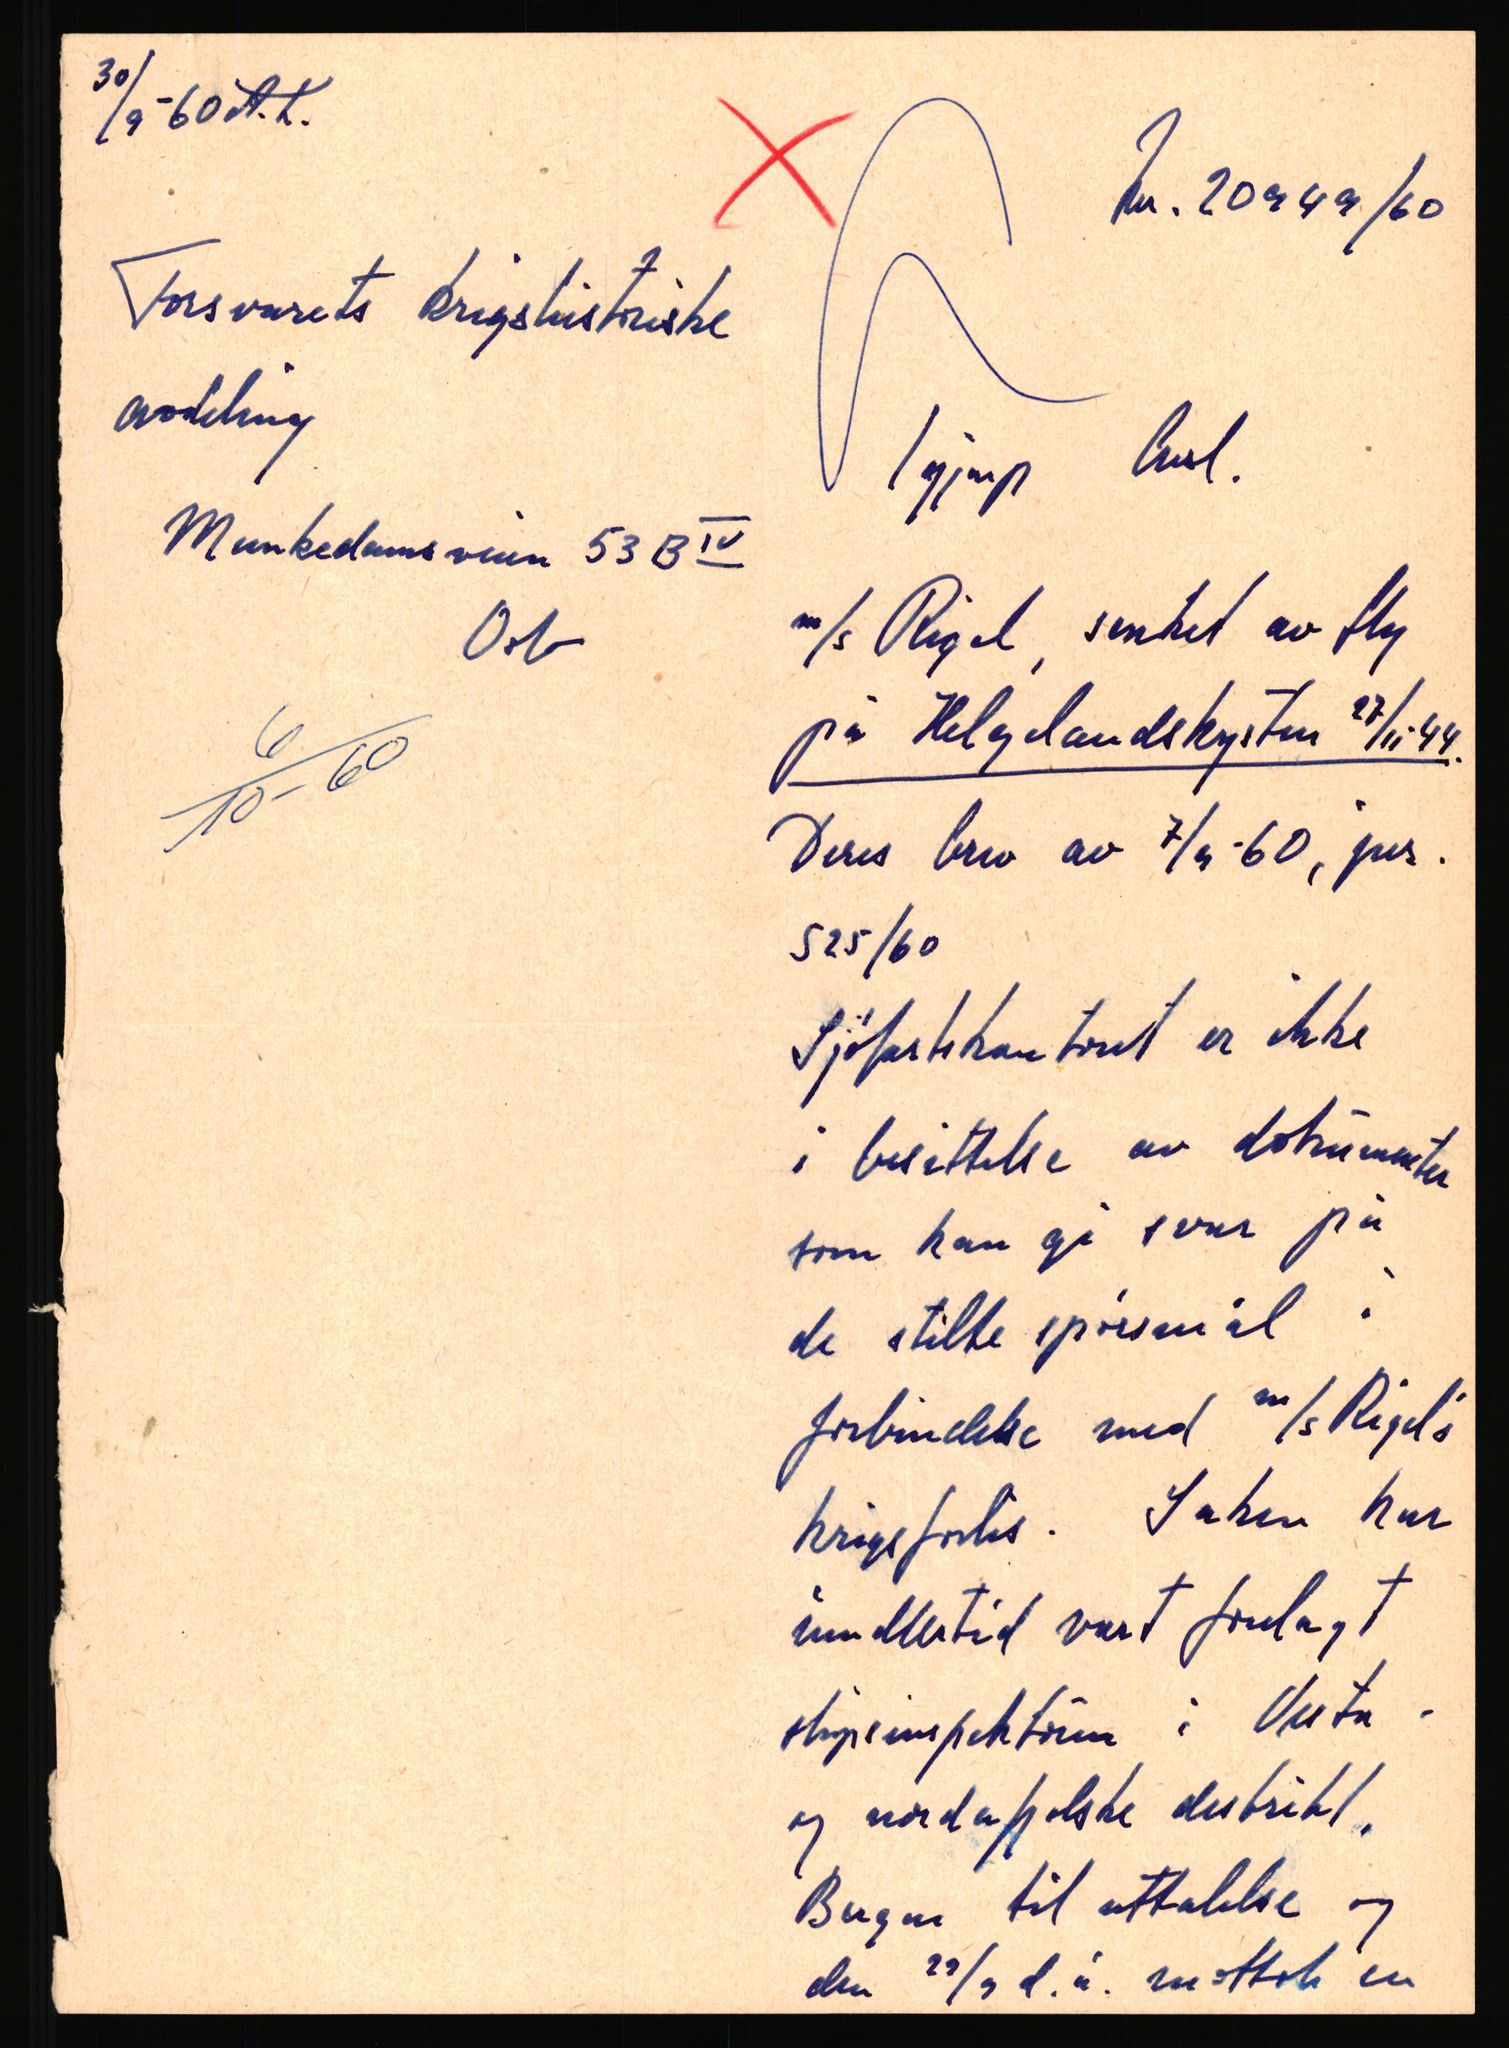 30/9-60 A.K.
Jnr. 20949/60
Forsvarets krigshistoriske
avdeling
Munkedamsveien 53 B IV
Oslo
6/10-60
m/s Rigel, senket av fly
på Helgelandskysten 27/11-44.
Deres brev av 7/9-60, jnr.
525/60
Sjöfartskontoret er ikke
i besittelse av dokumenter
som kan gi svar på
de stilte spörsmål i
forbindelse med m/s Rigel's
krigsforlis. Saken har
imidlertid vært forelagt
skipsinspektören i Vesta-
og nordafjelske distrikt,
Bergen til uttalelse og
den 29/9 d.å. mottok en